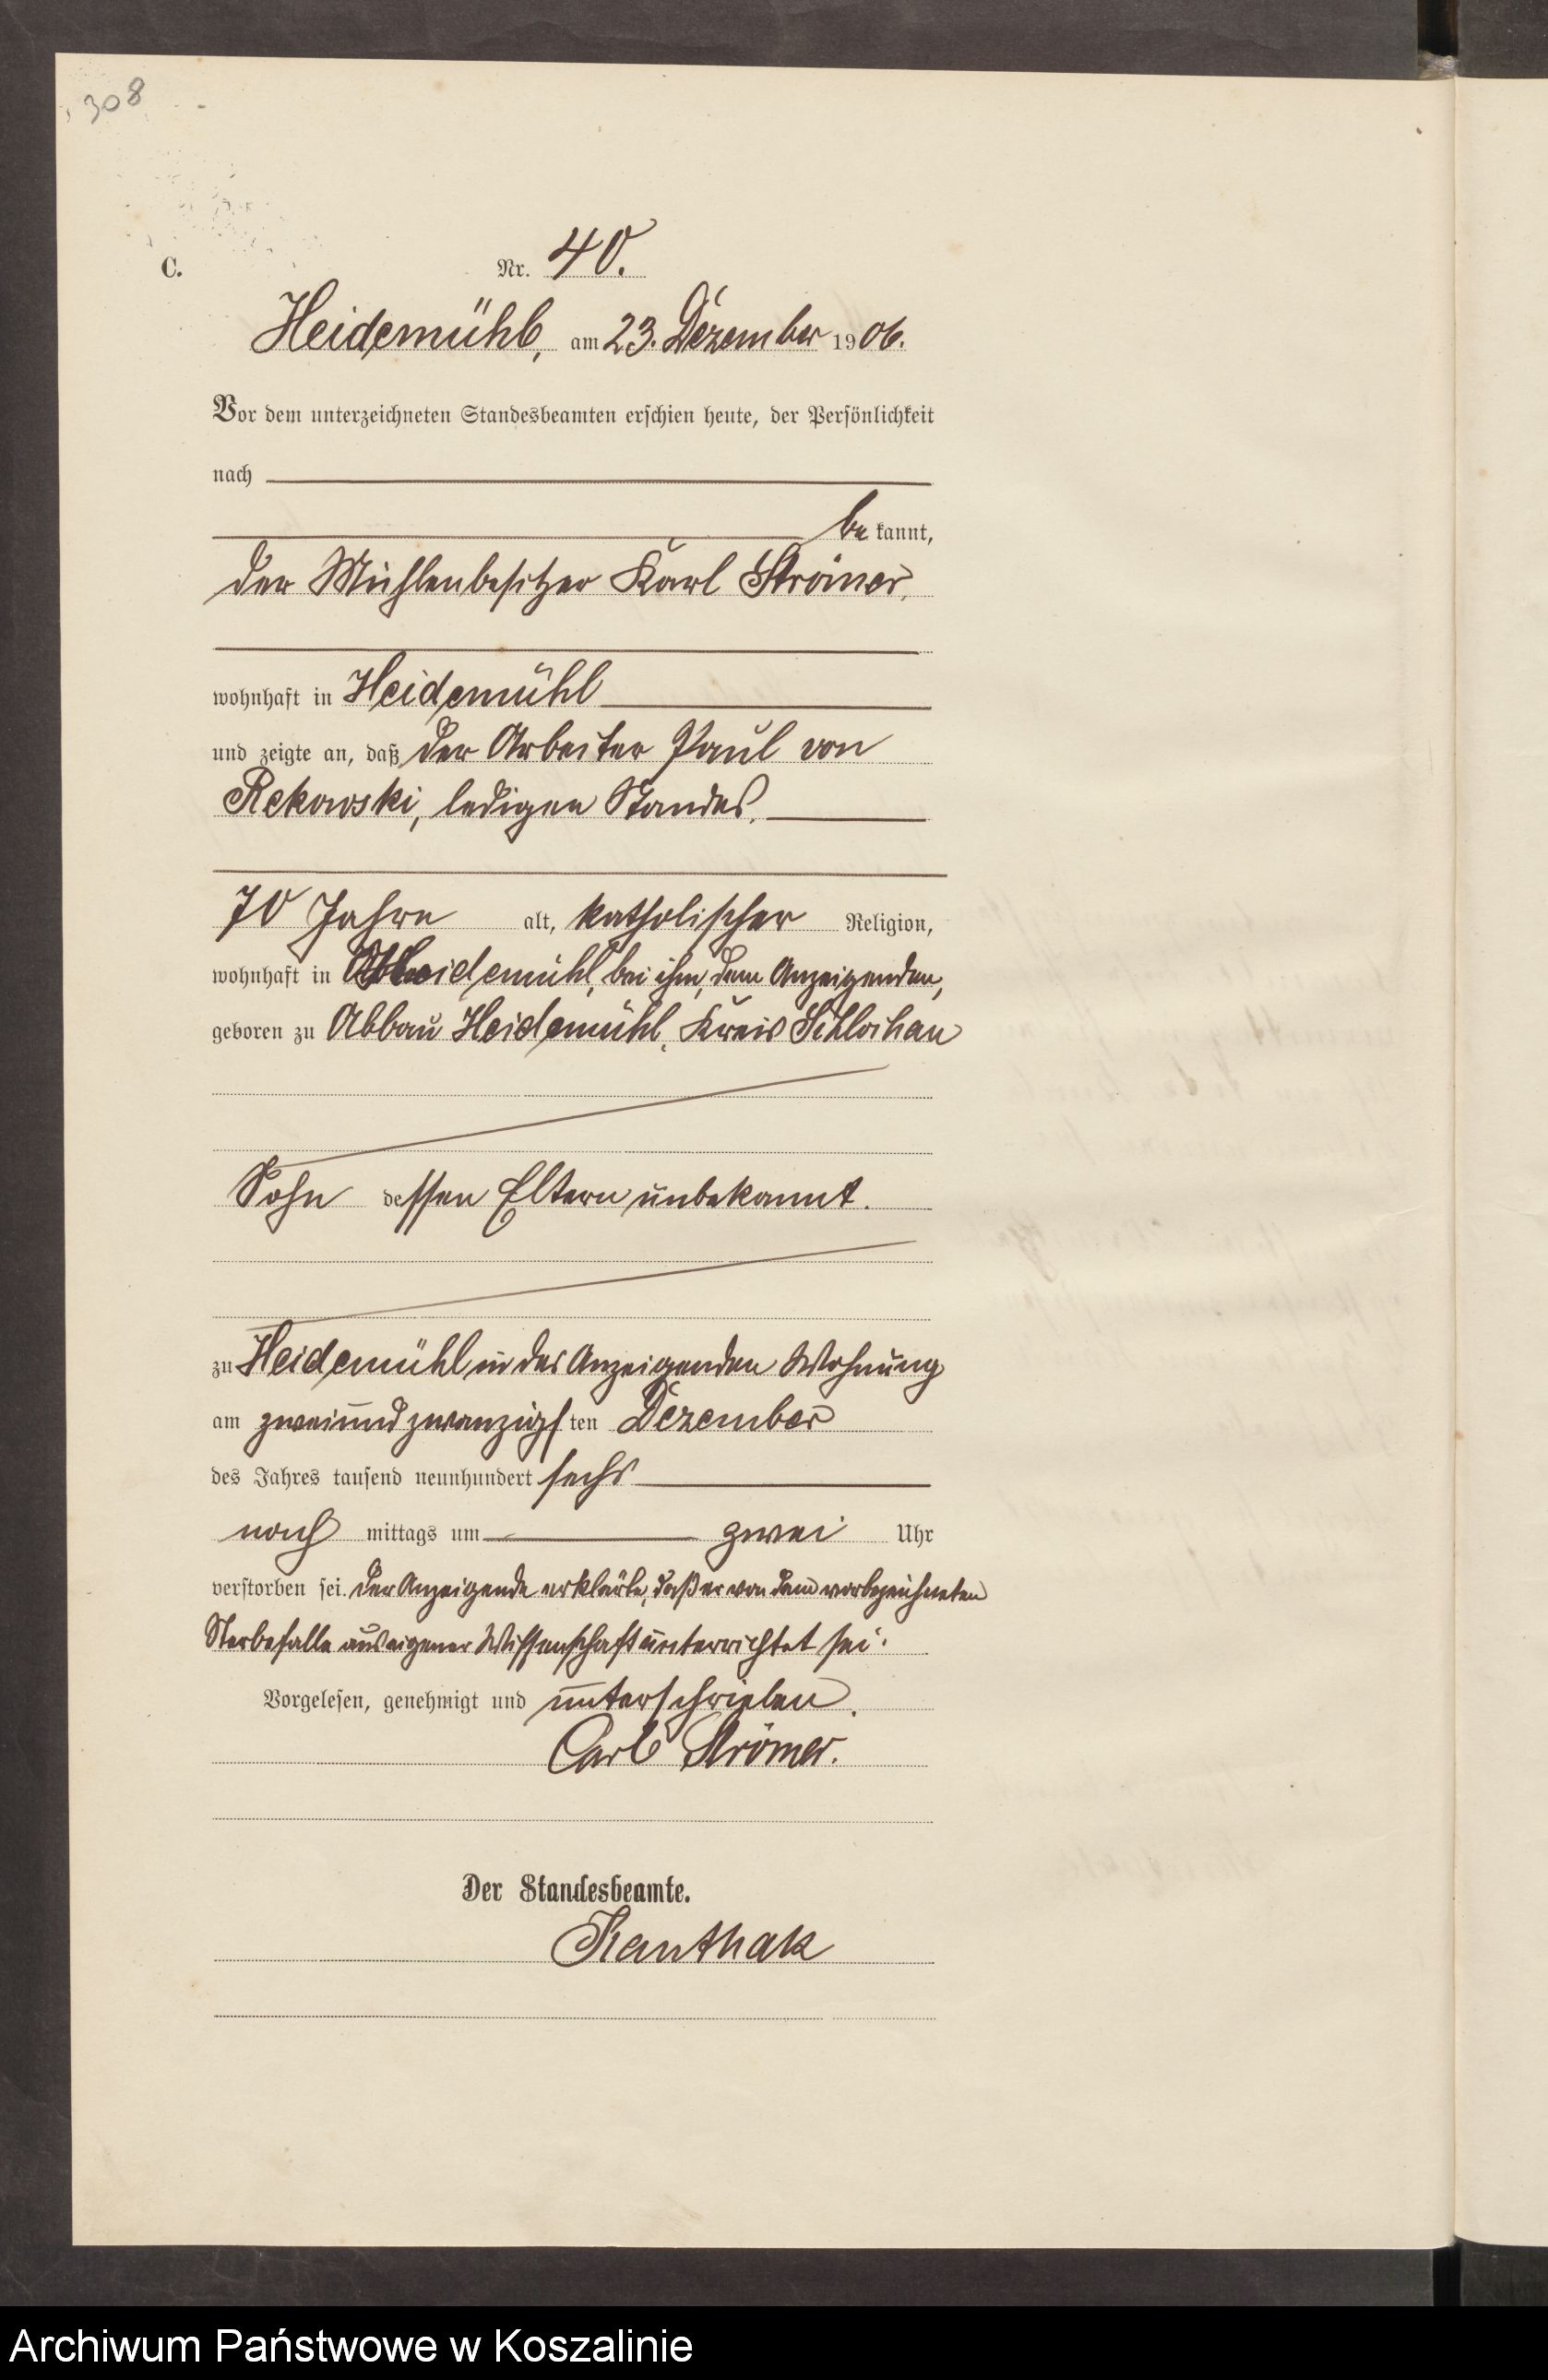 308
C.
Nr. 40.
Heidemühl, am 23. Dezember 1906.
Vor dem unterzeichneten Standesbeamten erschien heute, der Persönlichkeit
nach
be kannt,
der Mühlenbesitzer Karl Strömer,
wohnhaft in Heidemühl
und zeigte an, daß der Arbeiter Paul von
Rekowski, ledigen Standes,
70 Jahre alt, katholischer Religion,
wohnhaft in Heidemühl, bei ihm, dem Anzeigenden,
geboren zu Abbau Heidemühl, Kreis Schlochau
Sohn dessen Eltern unbekannt.
zu Heidemühl in des Anzeigenden Wohnung
am zweiundzwanzigsten Dezember
des Jahres tausend neunhundert sechs
nach mittags um zwei Uhr
verstorben sei. Der Anzeigende erklärte, daß er von dem vorbezeichneten
Sterbefalle aus eigener Wissenschaft unterrichtet sei.
Vorgelesen, genehmigt und unterschrieben.
Carl Strömer.
Der Standesbeamte.
Kanthak
Archiwum Państwowe w Koszalinie